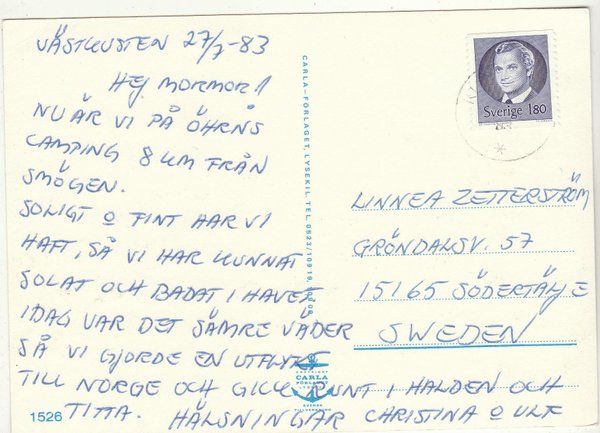 VÄSTKUSTEN 27/7-83
HEJ MORMOR!
NU ÄR VI PÅ ÖHRNS
CAMPING 8 KM FRÅN
SMÖGEN.
SOLIGT O FINT HAR VI
HAFT, SÅ VI HAR KUNNAT
SOLAT OCH BADAT I HAVET
IDAG VAR DET SÄMRE VÄDER
SÅ VI GJORDE EN UTFLYKT
TILL NORGE OCH GICK RUNT I HALDEN OCH
TITTA. HÄLSNINGAR CHRISTINA O ULF
1526
CARLA-FÖRLAGET, LYSEKIL TEL. 0523/10919
CARLA
FÖRLAGET
LYSEKIL
SVENSK
TILLVERKNING
Sverige 180
LINNEA ZETTERSTRÖM
GRÖNDALSV. 57
15165 SÖDERTÄLJE
SWEDEN